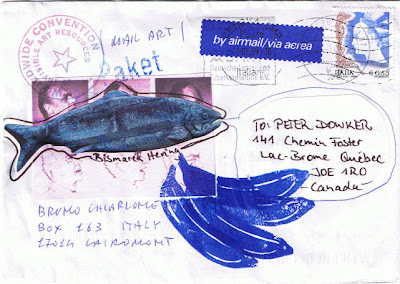 WIDE CONVENTION
VISIBLE ART RESOURCES
( MAIL ART )
Paket
by airmail/via aerea
Italian
ITALIA € 0,65
Bismarck Hering
TO: PETER DOWKER
141 Chemin Foster
Lac-Brome Québec
JOE 1R0
Canada
BRUNO CHIARLONE
BOX 163 ITALY
17014 CAIROMONT